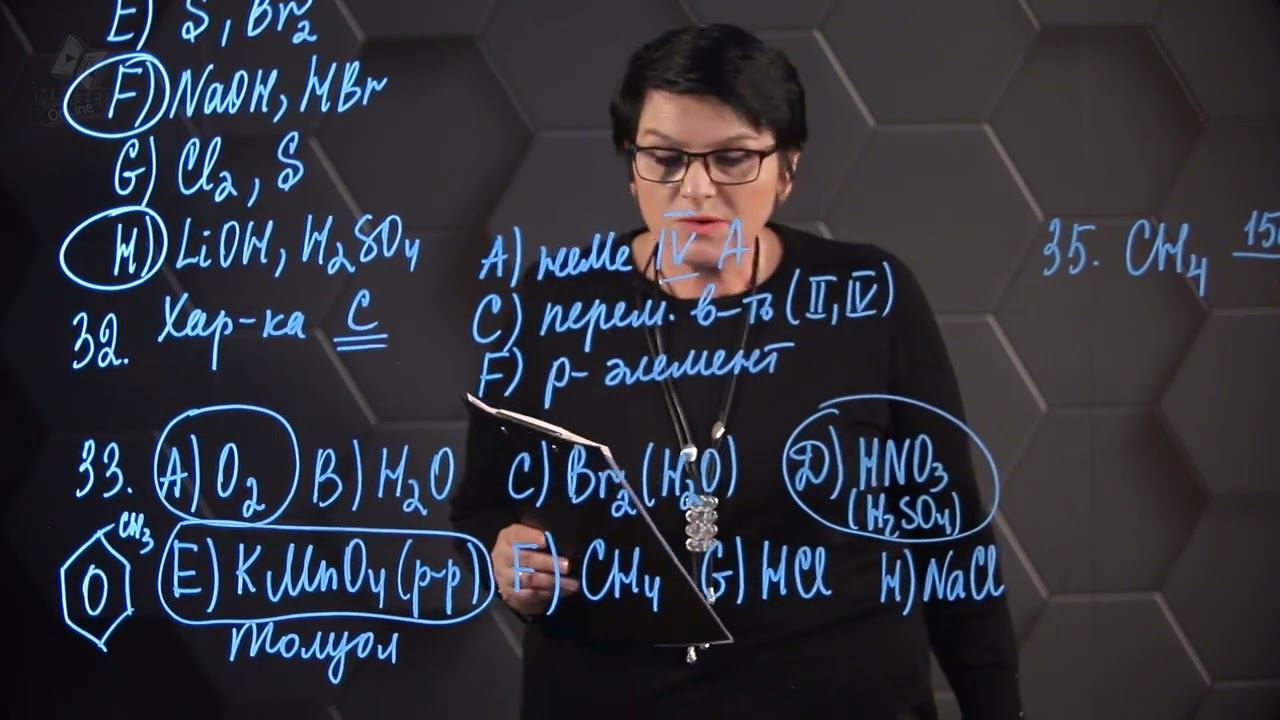 E) S, Br₂
F) NaOH, HBr
G) Cl₂, S
H) LiOH, H₂SO₄
32. Хар-ка C
A) IV A
C) перем. в-ть (II, IV)
F) p-элемент
33. A) O₂ B) H₂O C) Br₂ (H₂O) D) HNO₃ (H₂SO₄)
CH₃
E) KMnO₄ (р-р) F) CH₄ G) HCl H) NaCl
толуол
35. CH₄ 15
OnLine